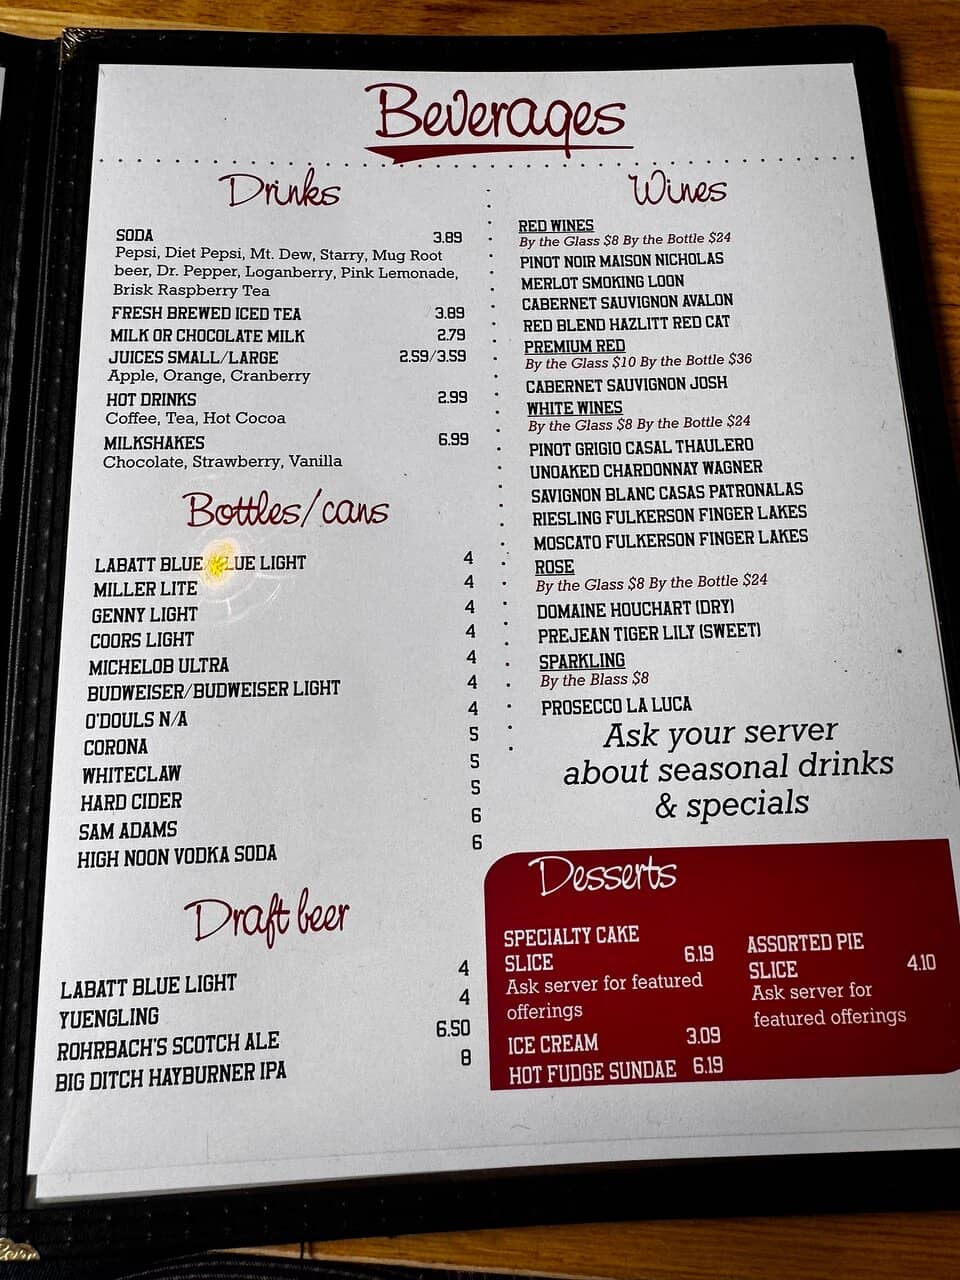 Beverages
Drinks
SODA 3.89
Pepsi, Diet Pepsi, Mt. Dew, Starry, Mug Root
beer, Dr. Pepper, Loganberry, Pink Lemonade,
Brisk Raspberry Tea
FRESH BREWED ICED TEA 3.89
MILK OR CHOCOLATE MILK 2.79
JUICES SMALL/LARGE 2.59/3.59
Apple, Orange, Cranberry
HOT DRINKS 2.99
Coffee, Tea, Hot Cocoa
MILKSHAKES 6.99
Chocolate, Strawberry, Vanilla
Bottles/cans
LABATT BLUE/BLUE LIGHT 4
MILLER LITE 4
GENNY LIGHT 4
COORS LIGHT 4
MICHELOB ULTRA 4
BUDWEISER/BUDWEISER LIGHT 4
O'DOULS N/A 4
CORONA 5
WHITECLAW 5
HARD CIDER 5
SAM ADAMS 6
HIGH NOON VODKA SODA 6
Draft beer
LABATT BLUE LIGHT 4
YUENGLING 4
ROHRBACH'S SCOTCH ALE 6.50
BIG DITCH HAYBURNER IPA 8
Wines
RED WINES
By the Glass $8 By the Bottle $24
PINOT NOIR MAISON NICHOLAS
MERLOT SMOKING LOON
CABERNET SAUVIGNON AVALON
RED BLEND HAZLITT RED CAT
PREMIUM RED
By the Glass $10 By the Bottle $36
CABERNET SAUVIGNON JOSH
WHITE WINES
By the Glass $8 By the Bottle $24
PINOT GRIGIO CASAL THAULERO
UNOAKED CHARDONNAY WAGNER
SAVIGNON BLANC CASAS PATRONALAS
RIESLING FULKERSON FINGER LAKES
MOSCATO FULKERSON FINGER LAKES
ROSE
By the Glass $8 By the Bottle $24
DOMAINE HOUCHART (DRY)
PREJEAN TIGER LILY (SWEET)
SPARKLING
By the Blass $8
PROSECCO LA LUCA
Ask your server
about seasonal drinks
& specials
Desserts
SPECIALTY CAKE
SLICE 6.19
Ask server for featured
offerings
ICE CREAM 3.09
HOT FUDGE SUNDAE 6.19
ASSORTED PIE
SLICE 4.10
Ask server for
featured offerings